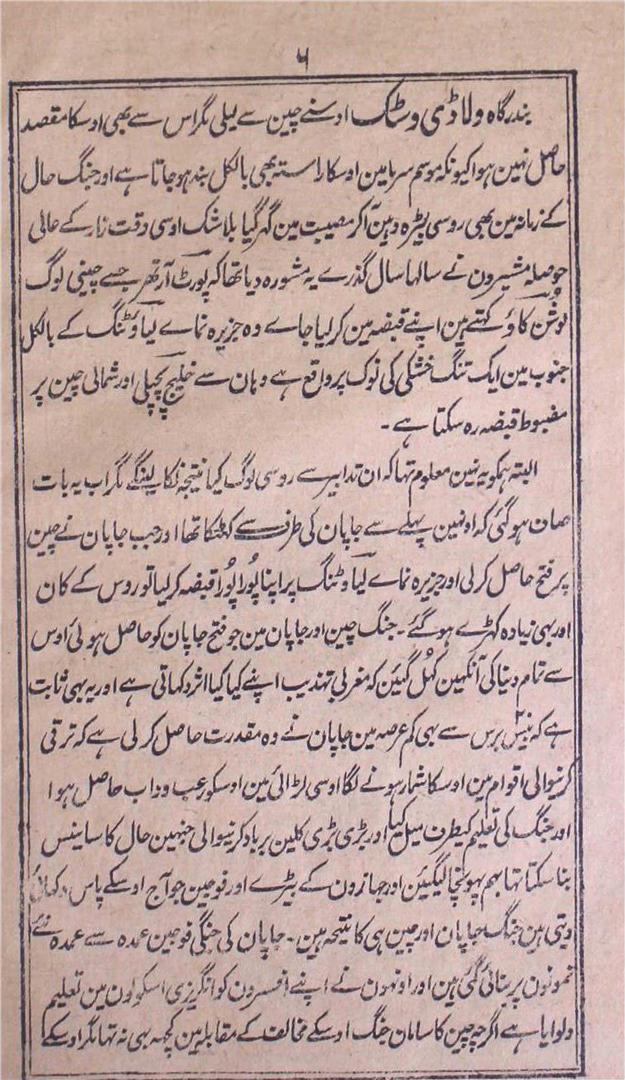 ۶
بندرگاہ ولاڈی وسٹک اوسنے چین سے لیلی مگر اس سے بھی اوسکا مقصد
حاصل نہین ہوا کیونکہ موسم سرما مین اوسکا راستہ بھی بالکل بند ہو جاتا ہے اور جنگ حال
کے زمانہ مین بھی روسی بیڑہ وہین آکر مصیبت مین گھر گیا بلاشک اوسی وقت زار کے عالی
حوصلہ مشیرون نے سالہا سال گذرے یہ مشورہ دیا تھا کہ پورٹ آرتھر جسے چینی لوگ
لوشن کاؤ کہتے ہین اپنے قبضہ مین کر لیا جاے وہ جزیرہ نماے لیاؤٹنگ کے بالکل
جنوب مین ایک تنگ خشکی کی نوک پر واقع ہے وہان سے خلیج پچیلی اور شمالی چین پر
مضبوط قبضہ رہ سکتا ہے ۔
البتہ ہمکو یہ نہین معلوم تھا کہ ان تدابیر سے روسی لوگ کیا نتیجہ نکال لینگے مگر اب یہ بات
صاف ہو گئی کہ اونہین پہلے سے جاپان کی طرف سے کھٹکا تھا اور جب جاپان نے چین
پر فتح حاصل کر لی اور جزیرہ نماے لیاؤٹنگ پر اپنا پُورا پُورا قبضہ کر لیا تو روس کے کان
اور بہی زیادہ کہڑے ہو گئے ۔ جنگ چین اور جاپان مین جو فتح جاپان کو حاصل ہوئی اوس
سے تمام دنیا کی آنکہین کہُل گئین کہ مغربی تہذیب اپنے کیا کیا اثر دکہاتی ہے اور یہ بہی ثابت
ہے کہ برس سے بہی کم عرصہ مین جاپان نے وہ مقدرت حاصل کر لی ہے کہ ترقی
کرنیوالی اقوام مین اوسکا شمار ہونے لگا اوسی لڑائی مین اوسکو رعب و داب حاصل ہوا
اور جنگ کی تعلیم کیطرف میل کیا اور بڑی بڑی کلین برباد کرنیوالی جنہین حال کا ساینس
بنا سکتا تہا بہم پہونچا لیگیئن اور جہازون کے بیڑے اور فوجین جو آج اوسکے پاس دکہائی
دیتی ہین جنگ جاپان اور چین ہی کا نتیجہ ہین ۔ جاپان کی جنگی فوجین عمدہ سے عمدہ
نمونون پر بنائی گئی ہین اور اونہون نے اپنے افسرون کو انگریزی اسکولون مین تعلیم
دلوایا ہے اگرچہ چین کا سامان جنگ اوسکے مخالف کے مقابلہ مین کچہہ بہی نہ تہا مگر اوسکے